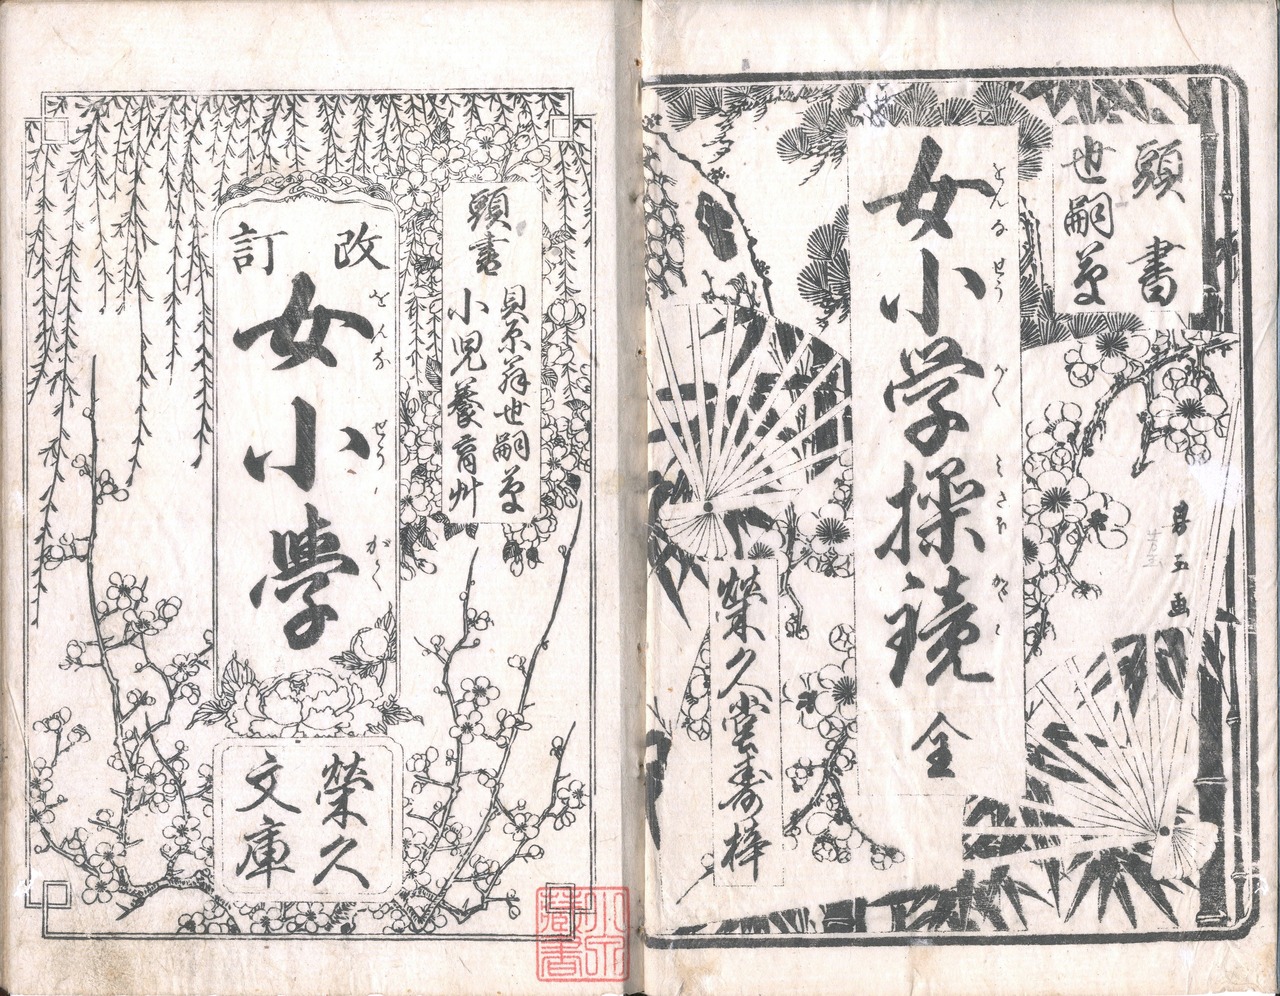 頭書
世嗣草
女小学操鏡 全
をんな せう がく みさを かゞみ
栄久堂寿梓
頭書
貝原翁世嗣草
小児養育艸
改訂
女小學
をんな せう がく
榮久
文庫
藏書